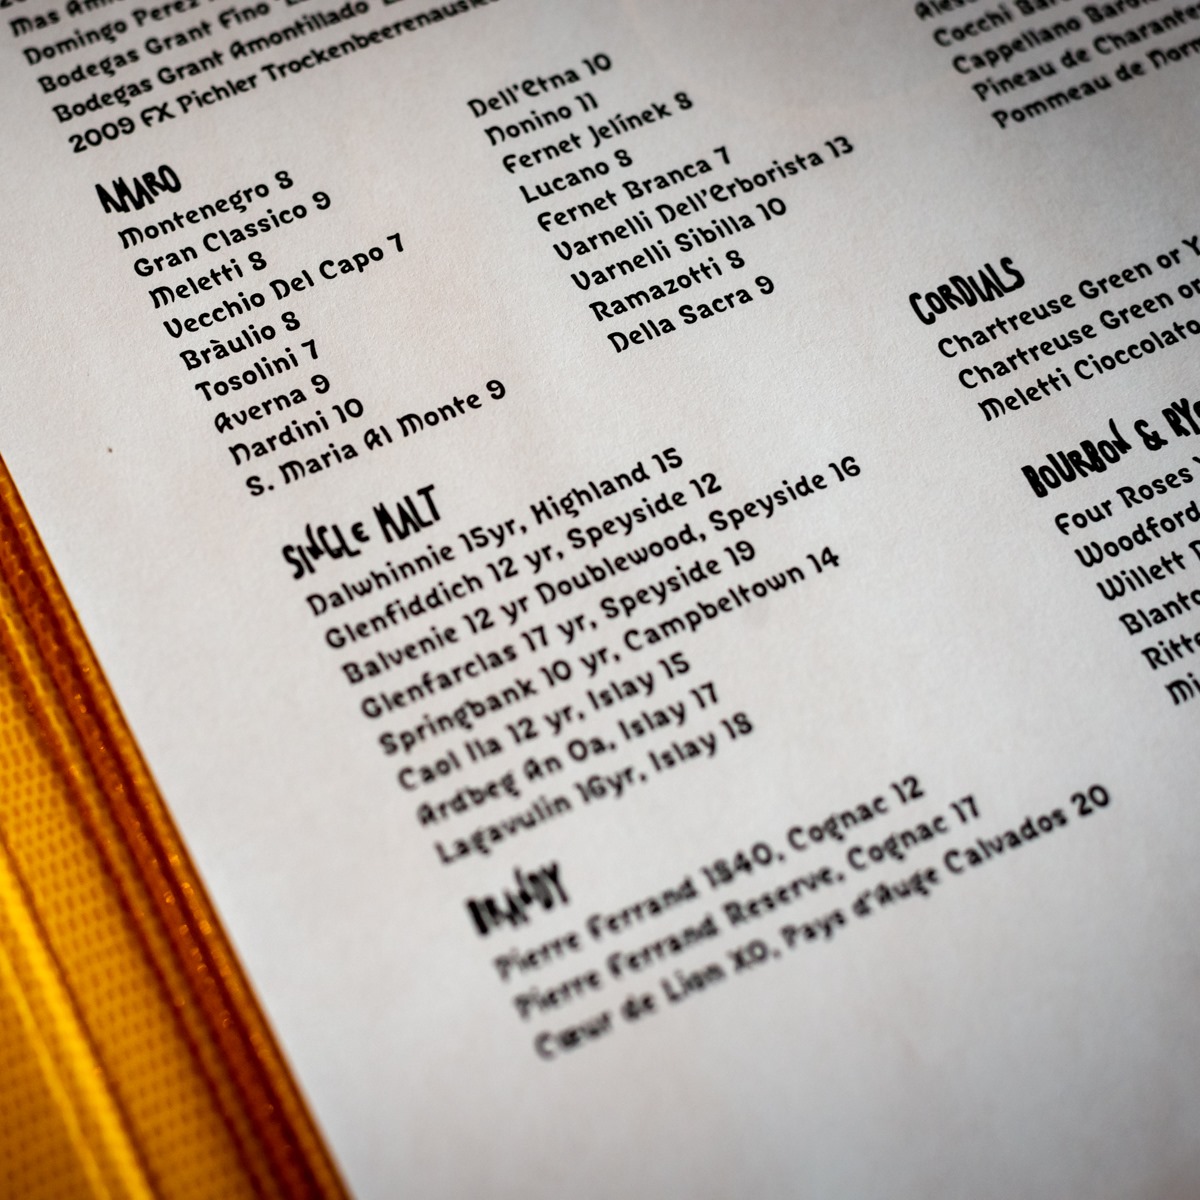 Mas
Domingo Perez
Bodegas Grant Fino
Bodegas Grant Amontillado
2009 FX Pichler
AMARO
Montenegro 8
Gran Classico 9
Meletti 8
Vecchio Del Capo 7
Bràulio 8
Tosolini 7
Averna 9
Nardini 10
S. Maria Al Monte 9
Dell'Etna 10
Nonino 11
Fernet Jelínek 8
Lucano 8
Fernet Branca 7
Varnelli Dell'Erborista 13
Varnelli Sibilla 10
Ramazotti 8
Della Sacra 9
SINGLE MALT
Dalwhinnie 15yr, Highland 15
Glenfiddich 12 yr, Speyside 12
Balvenie 12 yr Doublewood, Speyside 16
Glenfarclas 17 yr, Speyside 19
Springbank 10 yr, Campbeltown 14
Caol Ila 12 yr, Islay 15
Ardbeg An Oa, Islay 17
Lagavulin 16yr, Islay 18
BRANDY
Pierre Ferrand 1840, Cognac 12
Pierre Ferrand Reserve, Cognac 17
Cœur de Lion XO, Pays d'Auge Calvados 20
Cocchi
Cappellano
Pineau de
Pommeau de
CORDIALS
Chartreuse Green or
Chartreuse Green or
Meletti Cioccolato
BOURBON &
Four Roses
Woodford
Willett